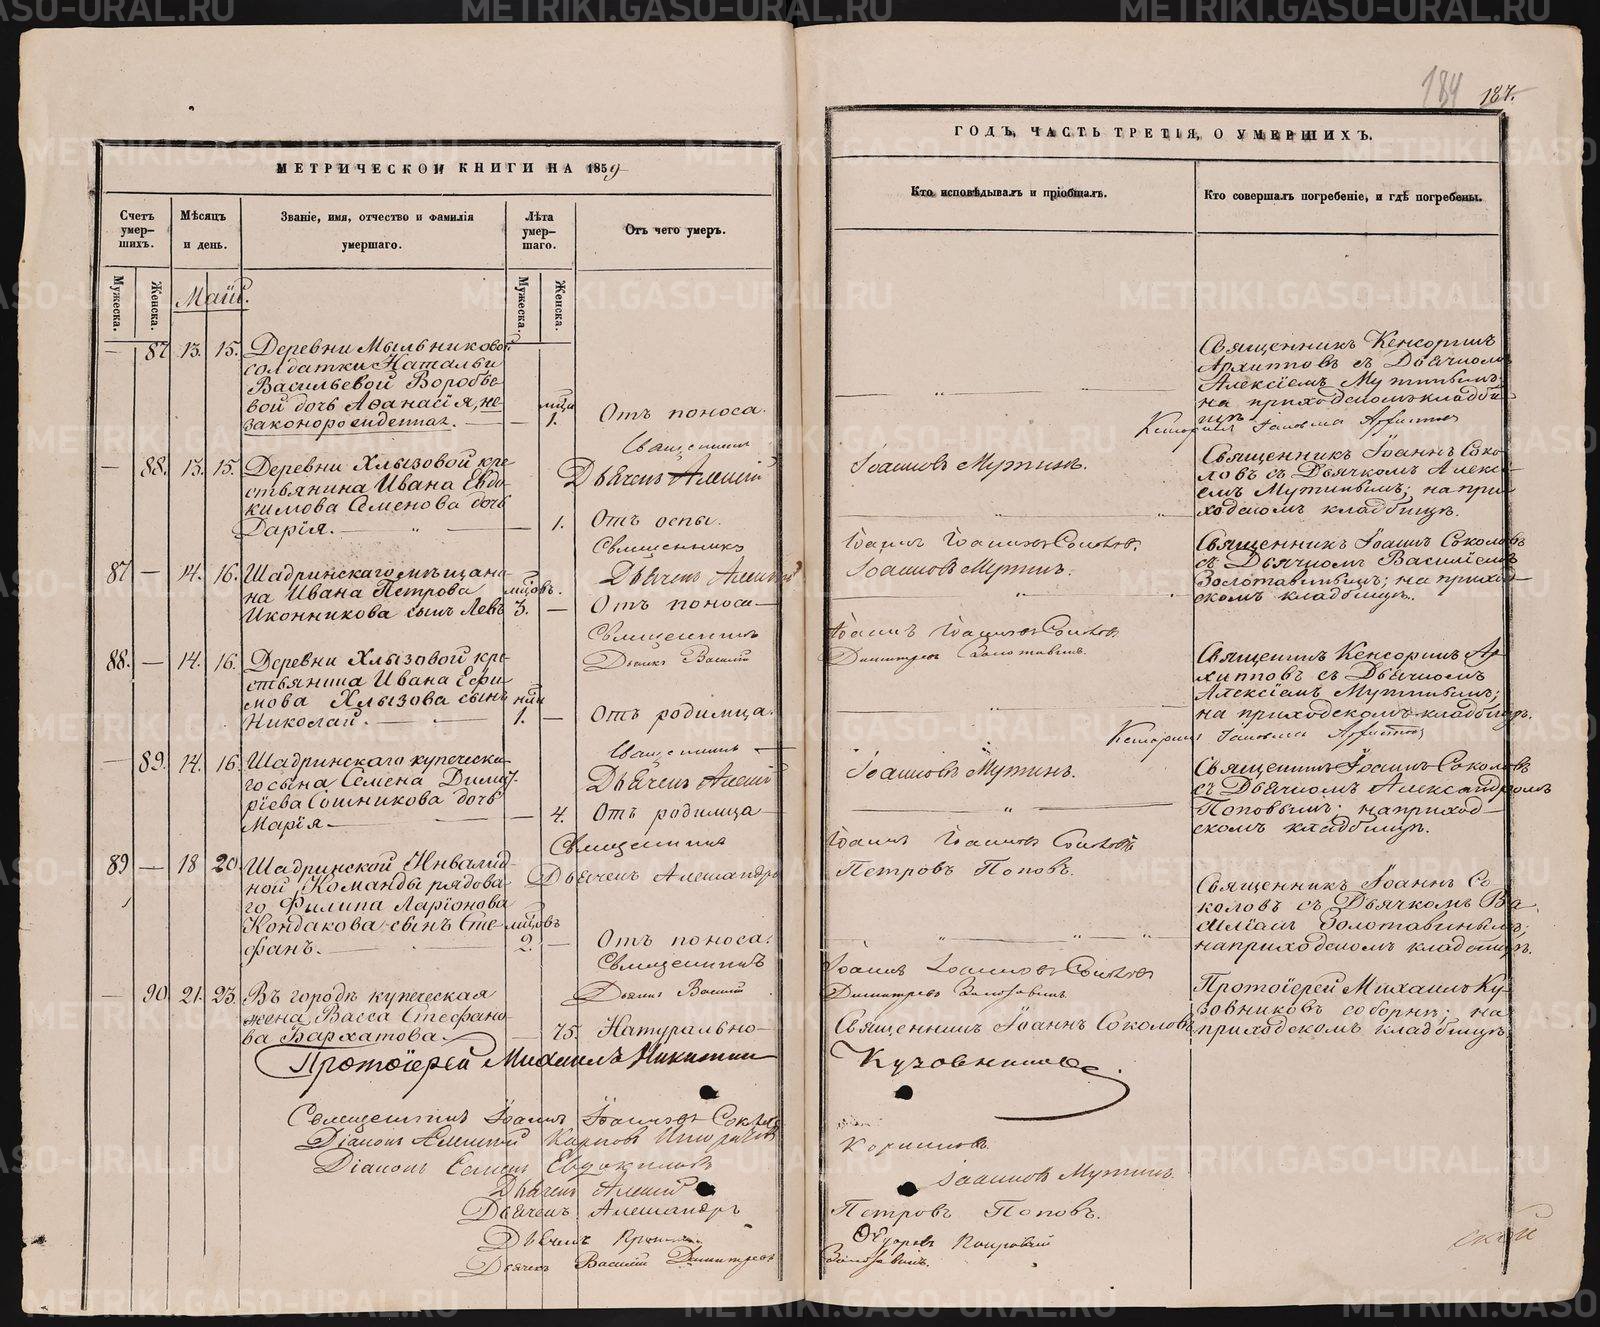 184 187.
МЕТРИЧЕСКОЙ КНИГИ НА 1859
ГОДЪ, ЧАСТЬ ТРЕТІЯ, О УМЕРШИХЪ.
Счетъ умер-шихъ.
Мѣсяцъ и день.
Званіе, имя, отчество и фамилія умершаго.
Лѣта умер-шаго.
Отъ чего умеръ.
Кто исповѣдывалъ и пріобщалъ.
Кто совершалъ погребеніе, и гдѣ погребены.
Мужеска.
Женска.
Мужеска.
Женска.
Маій.
— 87 13. 15. Деревни Мыльниковой
солдатки Натальи
Васильевой Воробье-
вой дочь Аѳанасія, не-
законорожденная. — 1. Отъ поноса.
Священникъ Кенсоринъ
Архипповъ съ Дьячкомъ
Алексіемъ Мутинымъ
на приходскомъ кладби-
щѣ
Священникъ
— 88. 13. 15. Деревни Хлызовой кре-
стьянина Ивана Евдо-
кимова Семенова дочь
Дарія. — 1. Отъ оспы.
Дьячекъ Алексій Іоанновъ Мутинъ.
Священникъ Іоаннъ Соко-
ловъ съ Дьячкомъ Алексі-
емъ Мутинымъ; на при-
ходскомъ кладбищѣ.
Священникъ Іоаннъ Іоанновъ Соколовъ.
87 — 14. 16. Шадринскаго мѣщани-
на Ивана Петрова
Иконникова сынъ Левъ 3. — Отъ поноса —
Дьячекъ Алексій Іоанновъ Мутинъ.
Священникъ Іоаннъ Соколовъ
съ Дьячкомъ Василіемъ
Золотавинымъ; на приход-
скомъ кладбищѣ.
Священникъ Іоаннъ Іоанновъ Соколовъ
Дьячекъ Василій Димитріевъ Золотавинъ.
88. — 14. 16. Деревни Хлызовой кре-
стьянина Ивана Ефи-
мова Хлызова сынъ
Николай. — 1. — Отъ родимца.
Священникъ Кенсоринъ Ар-
хипповъ съ Дьячкомъ
Алексіемъ Мутинымъ;
на приходскомъ кладбищѣ.
Священникъ
— 89. 14. 16. Шадринскаго купеческа-
го сына Семена Димит-
ріева Сошникова дочь
Марія — 4. Отъ родимца —
Дьячекъ Алексій Іоанновъ Мутинъ.
Священникъ Іоаннъ Соколовъ
съ Дьячкомъ Александромъ
Поповымъ; на приход-
скомъ кладбищѣ.
Священникъ Іоаннъ Іоанновъ Соколовъ
Дьячекъ Александръ Петровъ Поповъ.
89 — 18 20. Шадринской Инвалид-
ной Команды рядова-
го Филипа Ларіонова
Кондакова сынъ Сте-
фанъ. — 2. — Отъ поноса.
Священникъ Іоаннъ Со-
коловъ съ Дьячкомъ Ва-
силіемъ Золотавинымъ;
на приходскомъ кладбищѣ.
Священникъ Іоаннъ Іоанновъ Соколовъ
Дьячекъ Василій Димитріевъ Золотавинъ.
— 90. 21. 23. Въ городѣ купеческая
жена Васса Стефано-
ва Бархатова. — 75. Натурально —
Священникъ Іоаннъ Соколовъ
Протоіерей Михаилъ Ку-
зовниковъ соборнѣ; на
приходскомъ кладбищѣ
Протоіерей Михаилъ Никитинъ Кузовниковъ.
Священникъ Іоаннъ Іоанновъ Соколовъ
Діаконъ Алексій Карповъ
Діаконъ Евдокимовъ
Дьячекъ Алексій Іоанновъ Мутинъ.
Дьячекъ Александръ Петровъ Поповъ.
Дьячекъ
Дьячекъ Василій Димитріевъ Золотавинъ.
METRIKI.GASO-URAL.RU